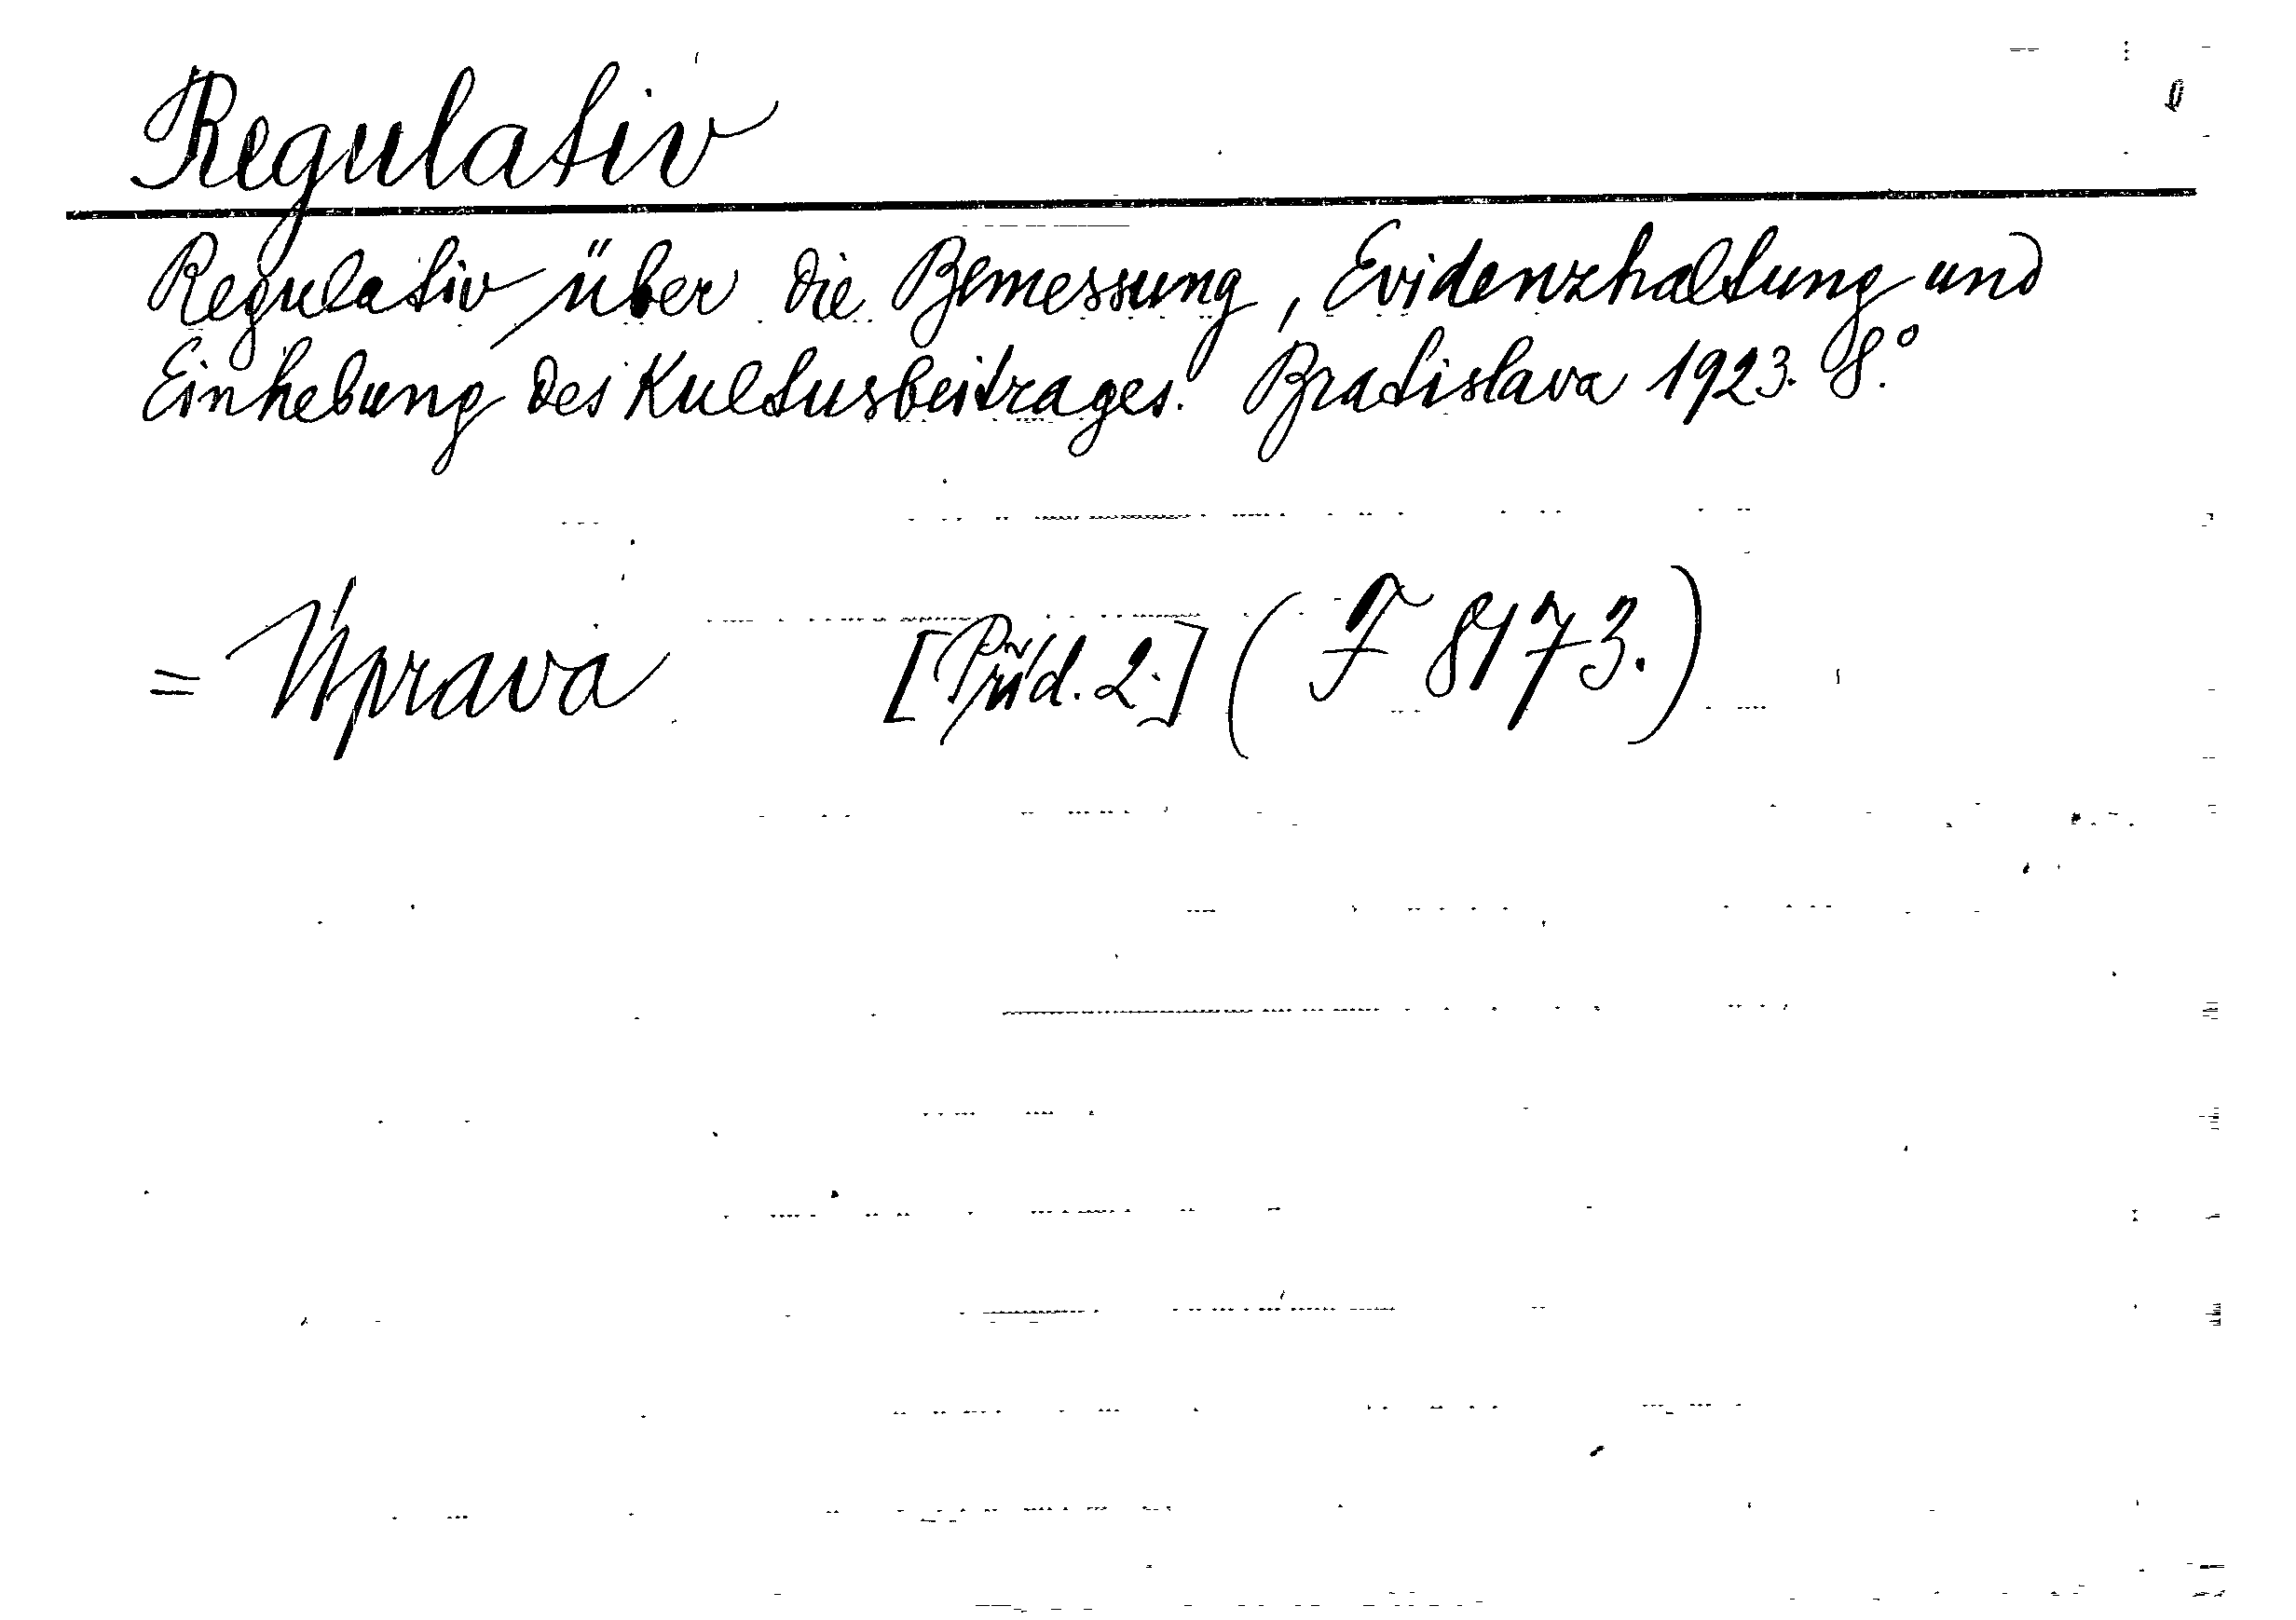 Regulativ
Regulativ über die Bemessung, Evidenzhaltung und
Einhebung des Kultusbeitrages. Bratislava 1923. 8.°
= Úprava [Příd. 2.] (F 8173.)